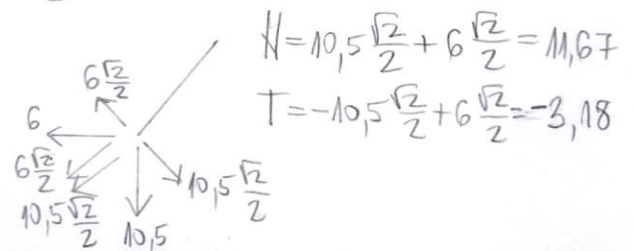 N=10,5 √2/2 + 6 √2/2 = 11,67
T=-10,5 √2/2 + 6 √2/2 = -3,18
6 √2/2
6
6 √2/2
10,5 √2/2
10,5
10,5 √2/2